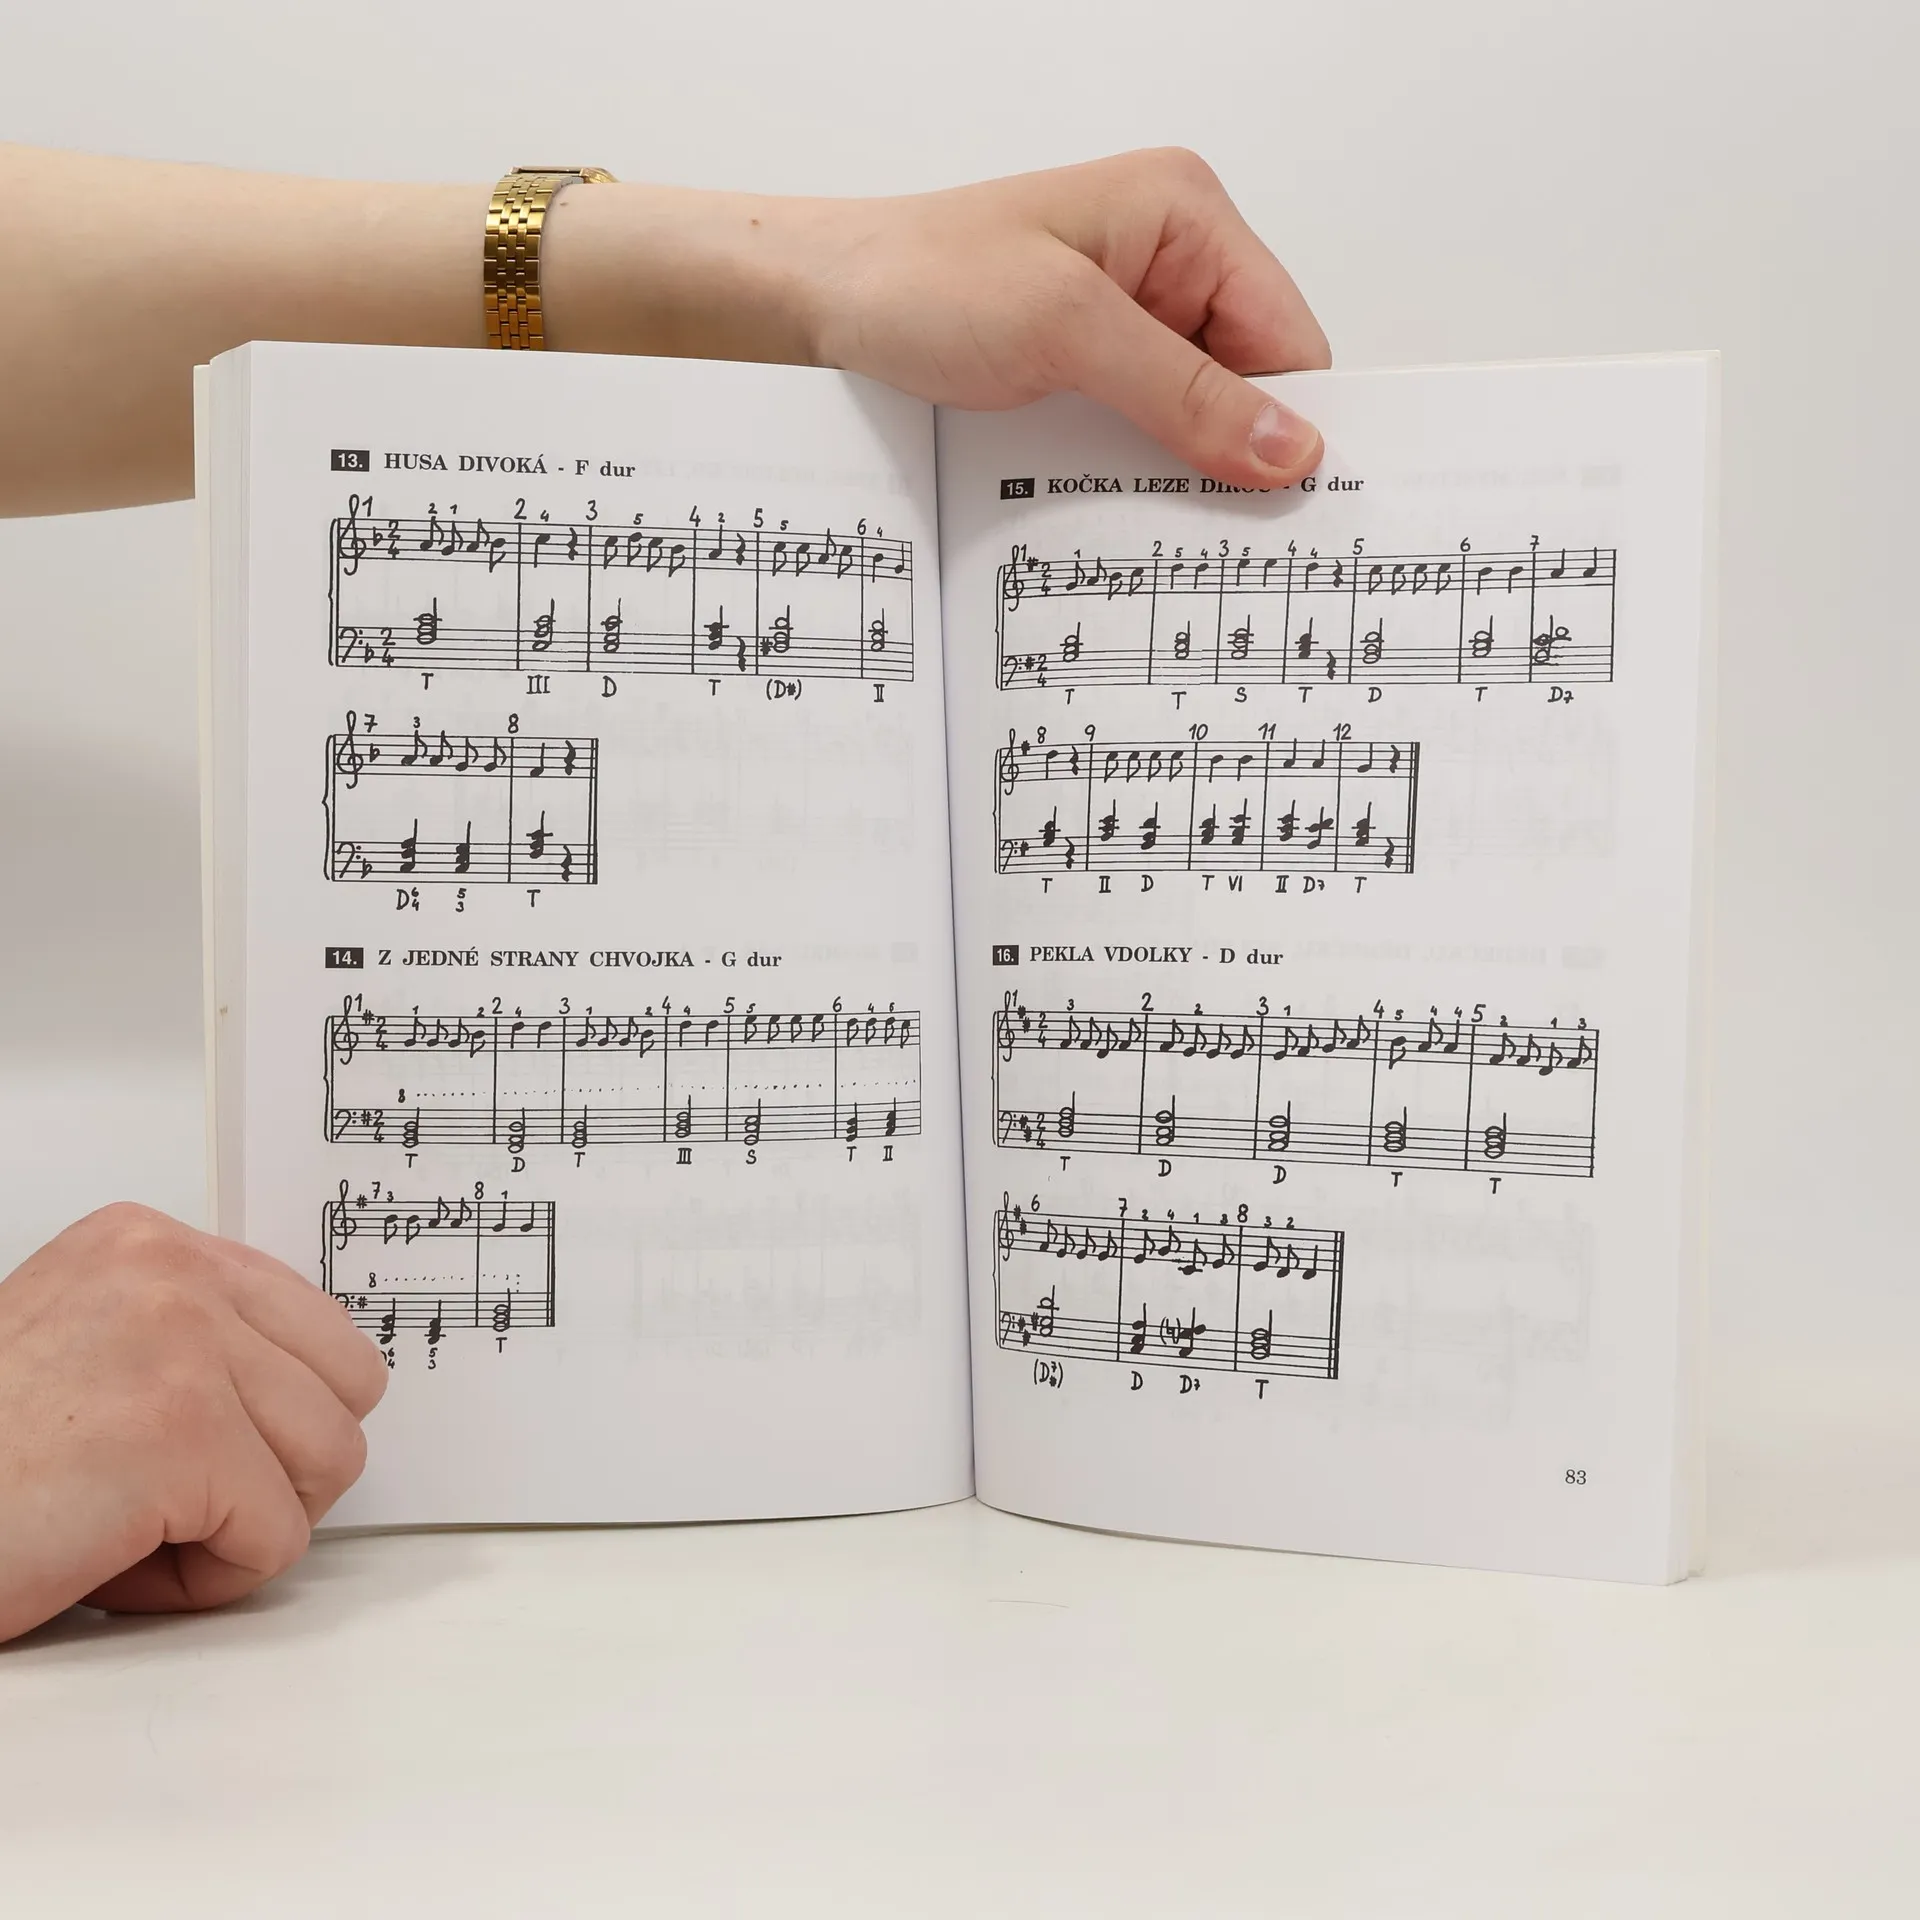 13. HUSA DIVOKÁ - F dur
1 2 3 4 5 6
2 1 4 5 2 5 4
2 4
2 4
T III D T (D#) II
7 8
3
D6 4 5 3 T
14. Z JEDNÉ STRANY CHVOJKA - G dur
1 2 3 4 5 6
1 2 4 1 2 4 5 4 5
2 4
8
2 4
T D T III S T II
7 8
3 1
8
6 4 5 3 T
15. KOČKA LEZE - G dur
1 2 3 4 5 6 7
1 5 4 5 4
2 4
2 4
T T S T D T D7
8 9 10 11 12
T II D T VI II D7 T
16. PEKLA VDOLKY - D dur
1 2 3 4 5
3 2 1 5 4 4 2 1 3
2 4
2 4
T D D T T
6 7 8
2 4 1 3 3 2
(D7 #) D D7 T
83